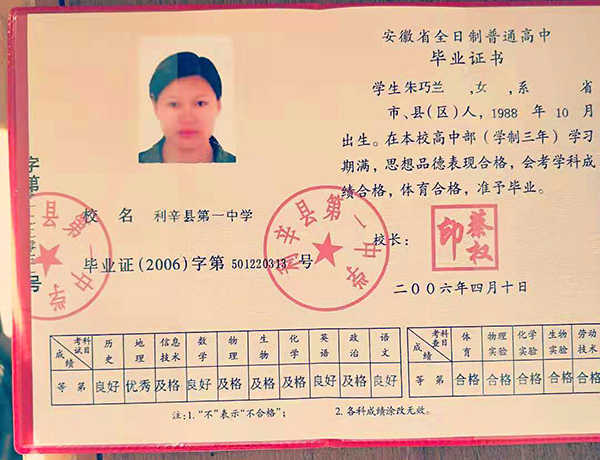 安徽省全日制普通高中
毕业证书
学生朱巧兰 ,女 ,系 省
市、县(区)人,1988 年 10 月
出生。在本校高中部(学制三年)学习
期满,思想品德表现合格,会考学科成
绩合格,体育合格,准予毕业。
校 名 利辛县第一中学
毕业证(2006)字第 501220313 号
利辛县第一中学
校长:
蔡权印
二00六年四月十日
字第
号
第一中学
考试科目 历史 地理 信息技术 数学 物理 生物 化学 英语 政治 语文
成绩
等 第 良好 优秀 及格 良好 及格 及格 及格 良好 及格 良好
考查科目 体育 物理实验 化学实验 生物实验 劳动技术
成绩
等 第 合格 合格 合格 合格 合格
注:1.“不”表示“不合格”; 2.各科成绩涂改无效。